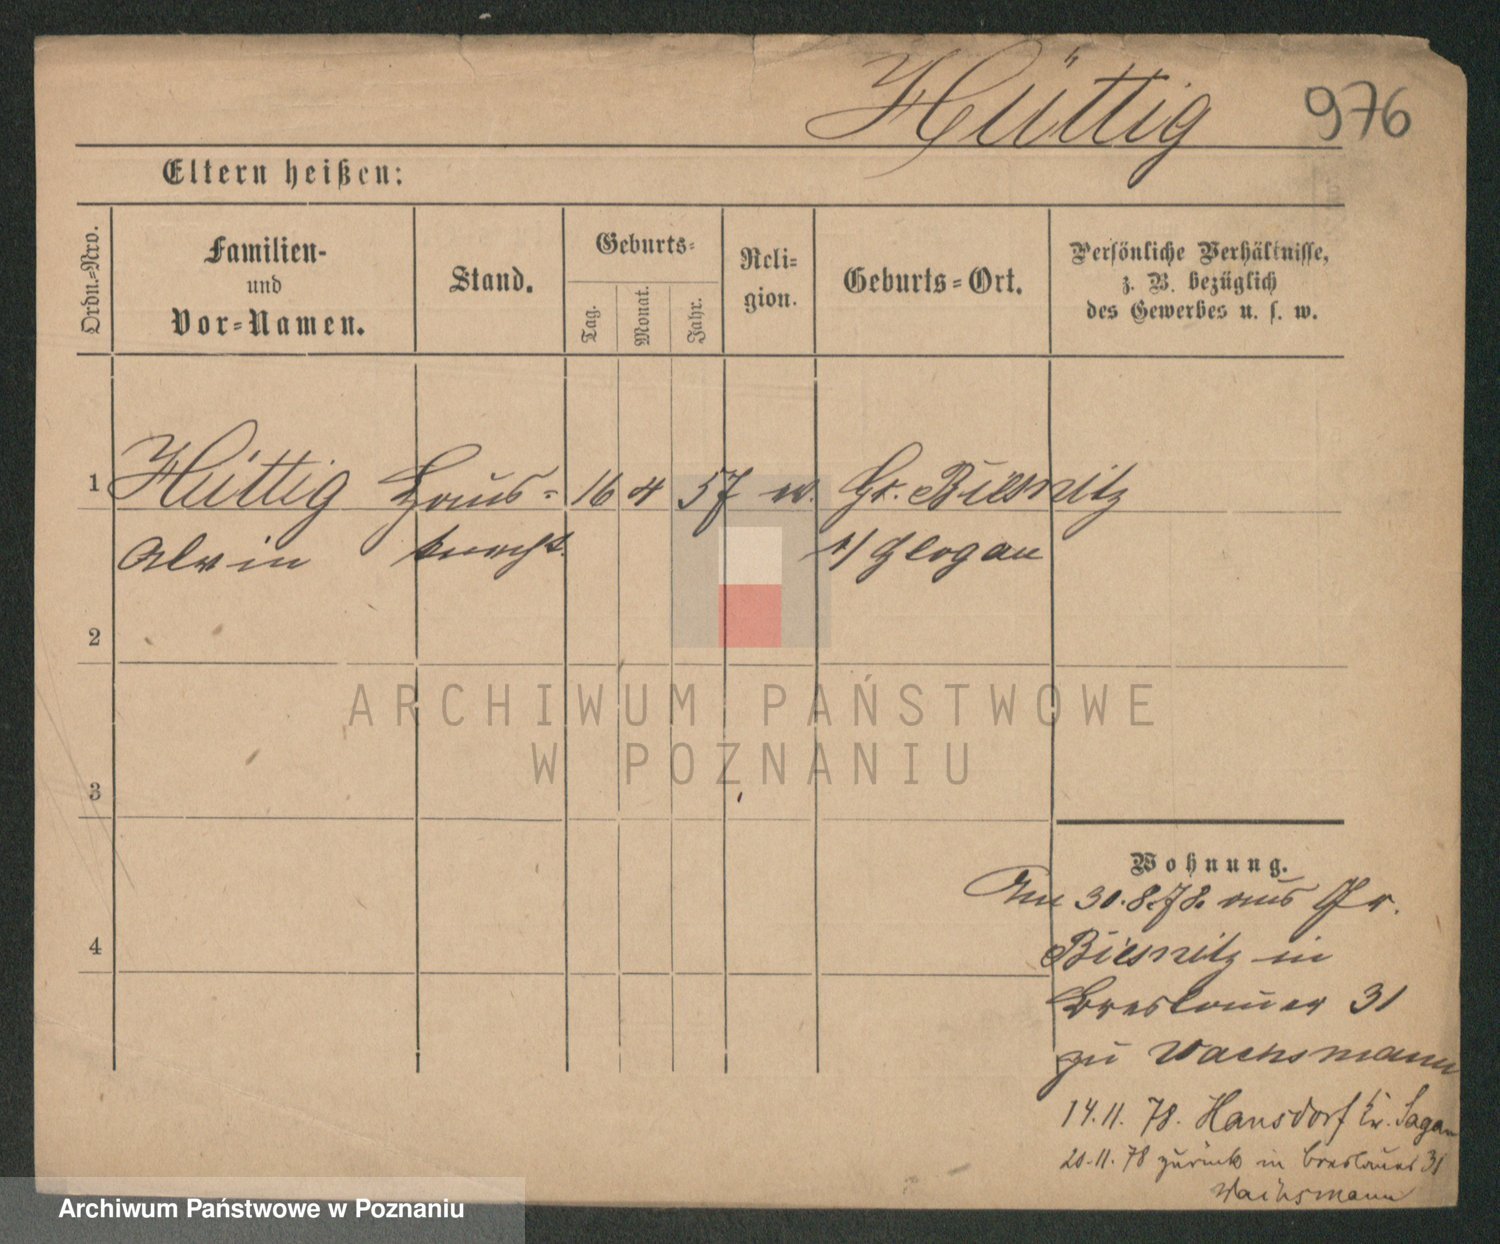 Hüttig 976
Eltern heißen:
Ordn.-Nro.
Familien- und Vor-Namen.
Stand.
Geburts-
Tag.
Monat.
Jahr.
Reli-
gion.
Geburts-Ort.
Persönliche Verhältnisse,
z. B. bezüglich
des Gewerbes u. s. w.
1 Hüttig Haus- 16 4 57 ev. Gr. Biesnitz
Alvin knecht. Glogau
2
3
4
Wohnung.
Am 30.8.78. aus Gr.
Biesnitz in
Breslauer 31
zu Wachsmann
14.11.78. Hansdorf Kr. Sagan
20.11.78 zurück in Breslauer 31
Wachsmann
ARCHIWUM PAŃSTWOWE
W POZNANIU
Archiwum Państwowe w Poznaniu